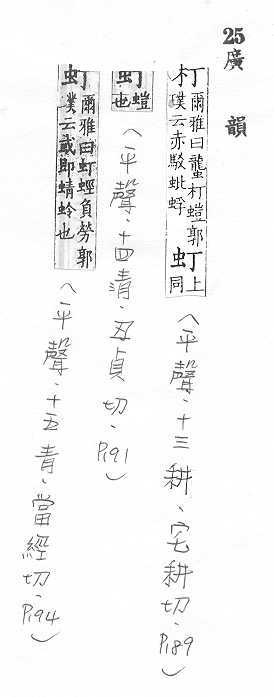 25廣韻
朾爾雅曰蠪朾螘郭璞云赤駁蚍蜉虰上同(平聲、十三耕、宅耕切、P.189)
虰螘也(平聲、十四清、丑貞切、P.191)
虰爾雅曰虰蛵負勞郭璞云或即蜻蛉也(平聲、十五青、當經切、P.194)